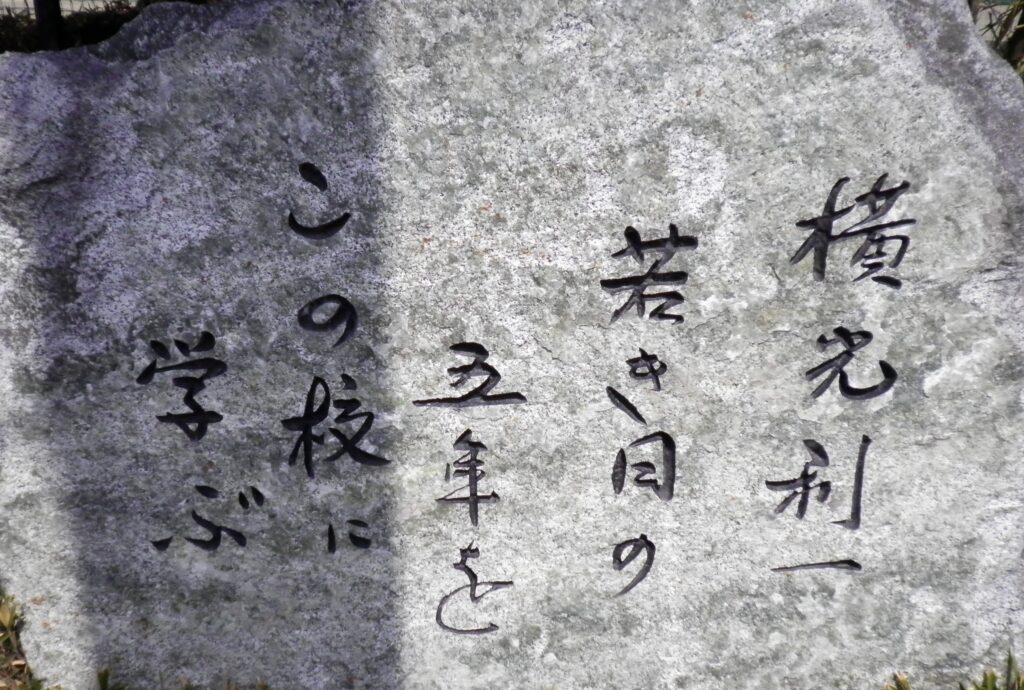 横光利一
若き日の
五年を
この校に
学ぶ